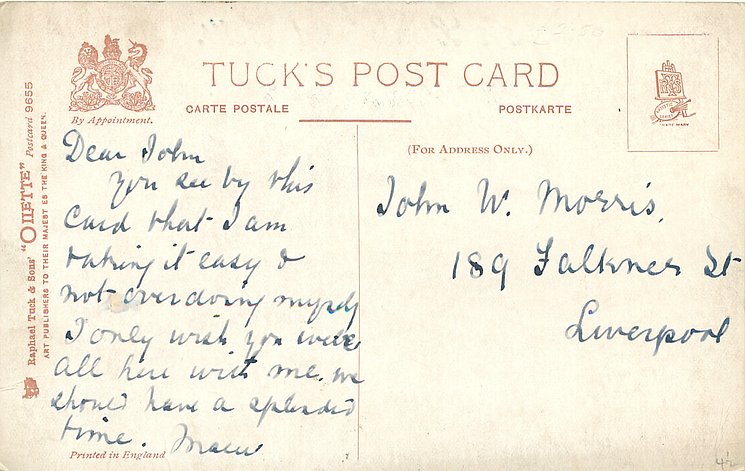 TUCK'S POST CARD
CARTE POSTALE
POSTKARTE
By Appointment.
(FOR ADDRESS ONLY.)
Raphael Tuck & Sons' "OILETTE" Postcard 9655
ART PUBLISHERS TO THEIR MAJESTIES THE KING & QUEEN.
Dear John
You see by this
card that I am
taking it easy &
not overdoing myself
I only wish you were
all here with me. we
should have a splendid
time.
Printed in England
John W. Morris,
189 Falkner St
Liverpool